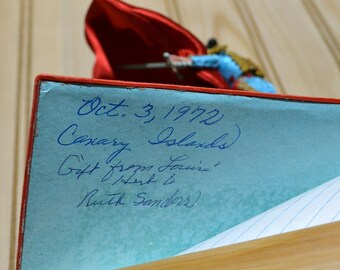 Oct. 3, 1972
Canary Islands
Gift from Louise
Herb &
Ruth Sanders